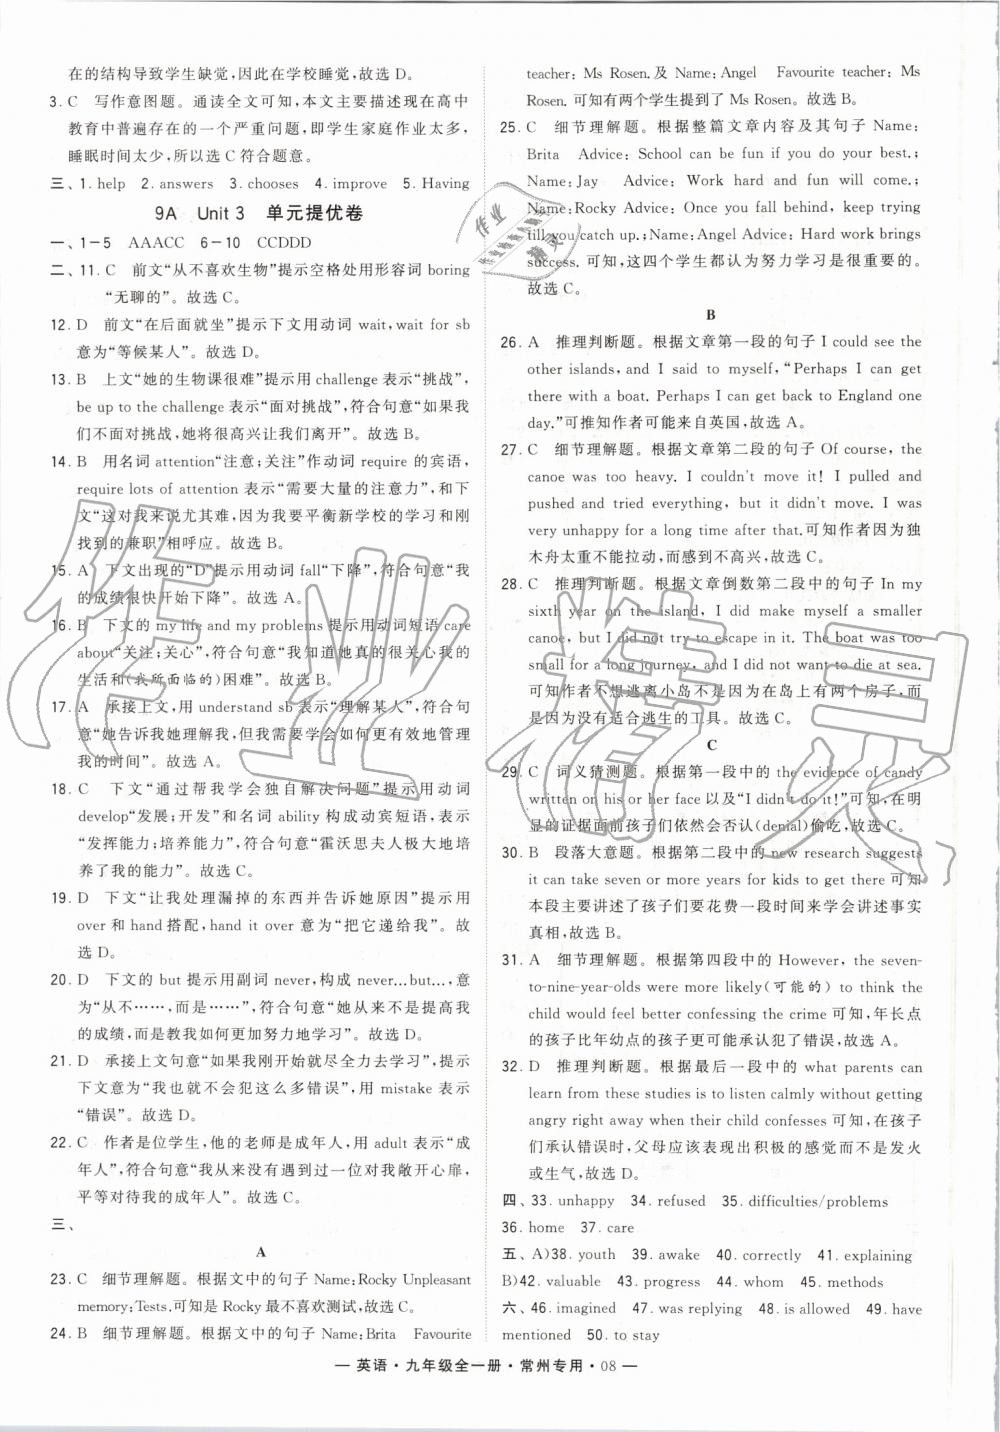 在的结构导致学生缺觉，因此在学校睡觉，故选 D。
3. C　写作意图题。通读全文可知，本文主要描述现在高中
教育中普遍存在的一个严重问题，即学生家庭作业太多，
睡眠时间太少，所以选 C 符合题意。
三、1. help　2. answers　3. chooses　4. improve　5. Having
9A　Unit 3　单元提优卷
一、1－5　AAACC　6－10　CCDDD
二、11. C　前文“从不喜欢生物”提示空格处用形容词 boring
“无聊的”。故选 C。
12. D　前文“在后面就坐”提示下文用动词 wait, wait for sb
意为“等候某人”。故选 D。
13. B　上文“她的生物课很难”提示用 challenge 表示“挑战”，
be up to the challenge 表示“面对挑战”，符合句意“如果我
们不面对挑战，她将很高兴让我们离开”。故选 B。
14. B　用名词 attention“注意；关注”作动词 require 的宾语，
require lots of attention 表示“需要大量的注意力”，和下
文“这对我来说尤其难，因为我要平衡新学校的学习和刚
找到的兼职”相呼应。故选 B。
15. A　下文出现的“D”提示用动词 fall“下降”，符合句意“我
的成绩很快开始下降”。故选 A。
16. B　下文的 my life and my problems 提示用动词短语 care
about“关注；关心”，符合句意“我知道她真的很关心我的
生活和(我所面临的)困难”。故选 B。
17. A　承接上文，用 understand sb 表示“理解某人”，符合句
意“她告诉我她理解我，但我需要学会更有效地管理
我的时间”。故选 A。
18. C　下文“通过帮我学会独自解决问题”提示用动词
develop“发展；开发”和名词 ability 构成动宾短语，表示
“发挥能力；培养能力”，符合句意“霍沃思夫人极大地培
养了我的能力”。故选 C。
19. D　下文“让我处理漏掉的东西并告诉她原因”提示用
over 和 hand 搭配，hand it over 意为“把它递给我”。故
选 D。
20. D　下文的 but 提示用副词 never，构成 never...but...，意
为“从不……，而是……”，符合句意“她从来不是提高我
的成绩，而是教我如何更加努力地学习”。故选 D。
21. D　承接上文句意“如果我刚开始就尽全力去学习”，提示
下文意为“我也就不会犯这么多错误”，用 mistake 表示
“错误”。故选 D。
22. C　作者是位学生，他的老师是成年人，用 adult 表示“成
年人”，符合句意“我从来没有遇到过一位对我敞开心扉，
平等对待我的成年人”。故选 C。
三、
A
23. C　细节理解题。根据文中的句子 Name: Rocky Unpleasant
memory: Tests. 可知是 Rocky 最不喜欢测试，故选 C。
24. B　细节理解题。根据文中的句子 Name: Brita　Favourite
teacher: Ms Rosen. 及 Name: Angel　Favourite teacher: Ms
Rosen. 可知有两个学生提到了 Ms Rosen。故选 B。
25. C　细节理解题。根据整篇文章内容及其句子 Name:
Brita　Advice: School can be fun if you do your best.;
Name: Jay　Advice: Work hard and fun will come.;
Name: Rocky Advice: Once you fall behind, keep trying
till you catch up.; Name: Angel Advice: Hard work brings
success. 可知，这四个学生都认为努力学习是很重要的。
故选 C。
B
26. A　推理判断题。根据文章第一段的句子 I could see the
other islands, and I said to myself, “Perhaps I can get
there with a boat. Perhaps I can get back to England one
day.”可推知作者可能来自英国，故选 A。
27. C　细节理解题。根据文章第二段的句子 Of course, the
canoe was too heavy. I couldn't move it! I pulled and
pushed and tried everything, but it didn't move. I was
very unhappy for a long time after that. 可知作者因为独
木舟太重不能拉动，而感到不高兴，故选 C。
28. C　推理判断题。根据文章倒数第二段中的句子 In my
sixth year on the island, I did make myself a smaller
canoe, but I did not try to escape in it. The boat was too
small for a long journey, and I did not want to die at sea.
可知作者不想逃离小岛不是因为在岛上有两个房子，而
是因为没有适合逃生的工具。故选 C。
C
29. C　词义猜测题。根据第一段中的 the evidence of candy
written on his or her face 以及“I didn't do it!”可知，在明
显的证据面前孩子们依然会否认(denial)偷吃，故选 C。
30. B　段落大意题。根据第二段中的 new research suggests
it can take seven or more years for kids to get there 可知
本段主要讲述了孩子们要花费一段时间来学会讲述事实
真相，故选 B。
31. A　细节理解题。根据第四段中的 However, the seven-
to-nine-year-olds were more likely(可能的) to think the
child would feel better confessing the crime 可知，年长点
的孩子比年幼点的孩子更可能承认犯了错误，故选 A。
32. D　推理判断题。根据最后一段中的 what parents can
learn from these studies is to listen calmly without getting
angry right away when their child confesses 可知，在孩子
们承认错误时，父母应该表现出积极的感觉而不是发火
或生气，故选 D。
四、33. unhappy　34. refused　35. difficulties/problems
36. home　37. care
五、A)38. youth　39. awake　40. correctly　41. explaining
B)42. valuable　43. progress　44. whom　45. methods
六、46. imagined　47. was replying　48. is allowed　49. have
mentioned　50. to stay
— 英语·九年级全一册·常州专用·08 —
作业精灵
作业精灵